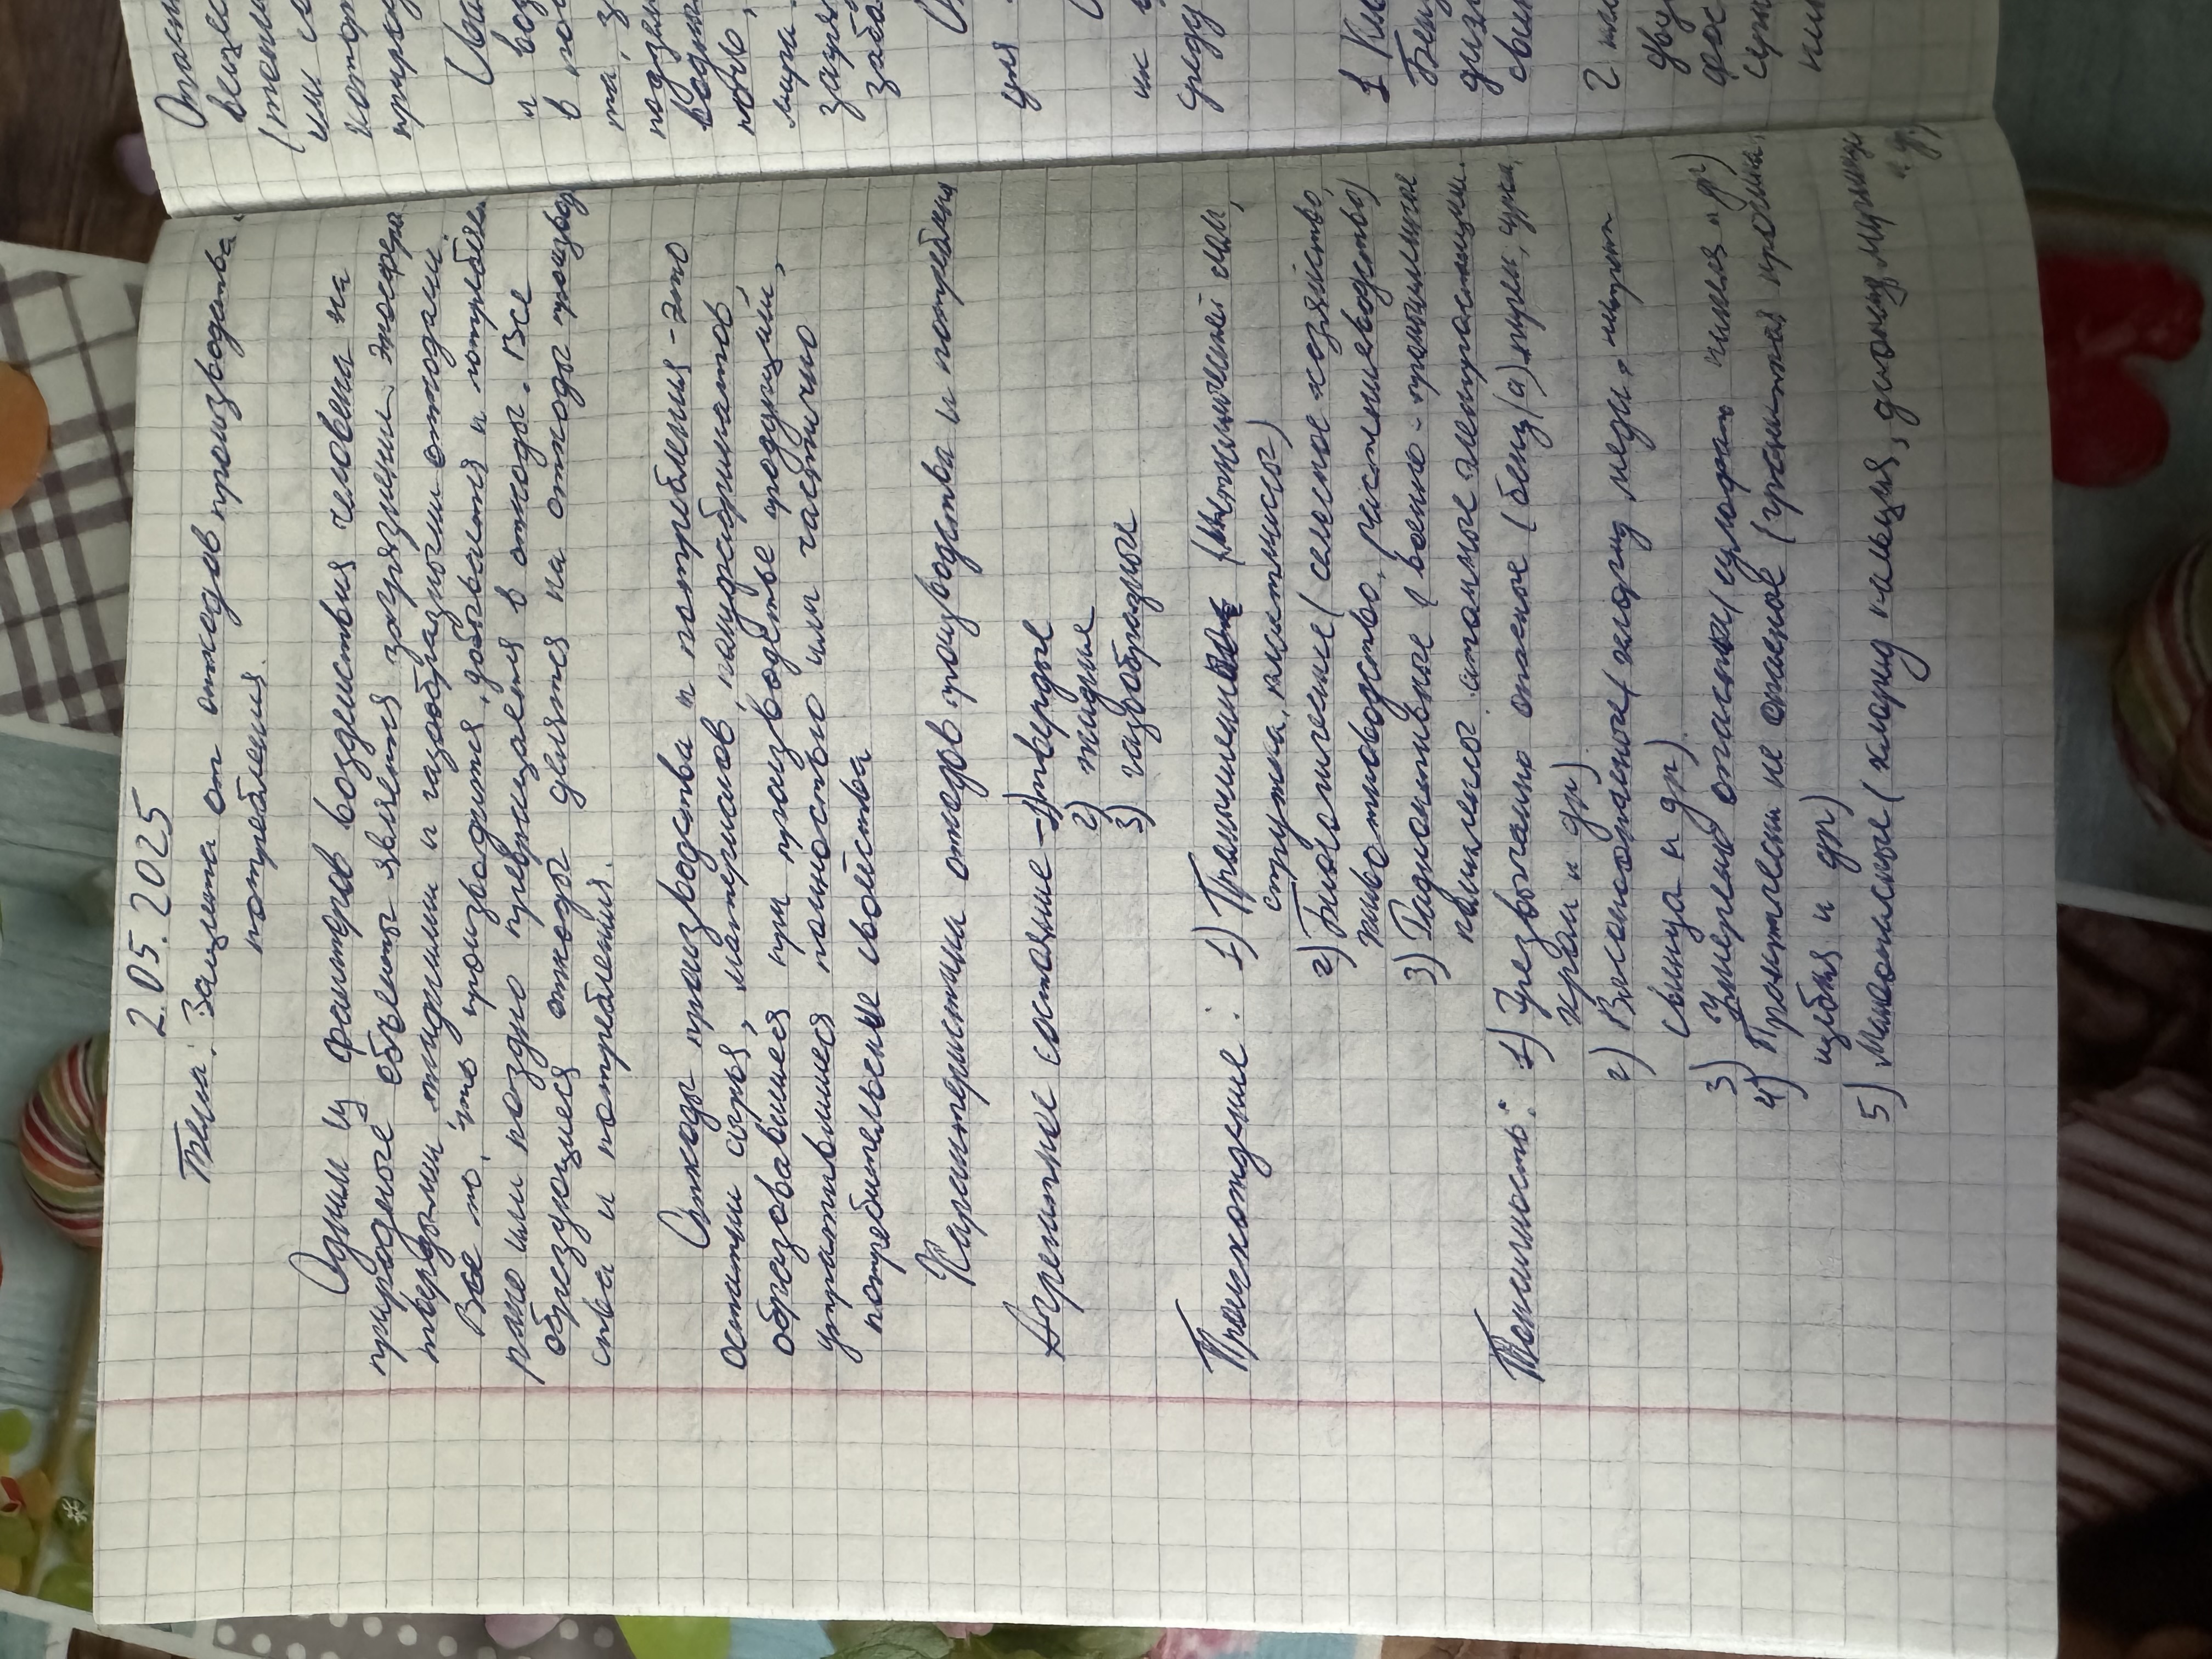 2.05.2025
Тема: Защита от отходов производства и
потребления.
Одним из факторов воздействия человека на
природные объекты является загрязнении экосферы
твердыми жидкими и газообразными отходами.
Все то, что производится, добывается и потребляе
рано или поздно превращается в отходы. Все
образующиеся отходы делятся на отходы производ
ства и потребления.
Отходы производства и потребления - это
остатки сырья, материалов, полуфабрикатов,
образовавшиеся при производстве продукции,
утратившиеся полностью или частично
потребительские свойства
Характеристики отходов производства и потребления
Агрегатное состояние - 1) твердые
2) жидкие
3) газообразные
Происхождение: 1) Промышленные (металлический лом,
стружка, пластмассы)
2) Биологические (сельское хозяйство,
животноводство, растениеводство)
3) Радиоактивные (военно-промышленный
комплекс. атомные электростанции.
Токсичность: 1) Чрезвычайно опасное (бенз(а)пирен,
хром и др)
2) Высокоопасное (хлорид меди, нитрат
свинца и др)
3) Умеренно опасные (сульфат и др)
4) Практически не опасное (гранитная крошка,
щебня и др)
5) Малоопасные (хлорид кальция, диоксид марганца
и др)
Отхо
веще
или со
котор
приро
и воз
в поч
та, з
подзем
водны
почв,
мира
загря
забо
ция
ик
среду
1 Кис
дизе
свин
2
дву
фос